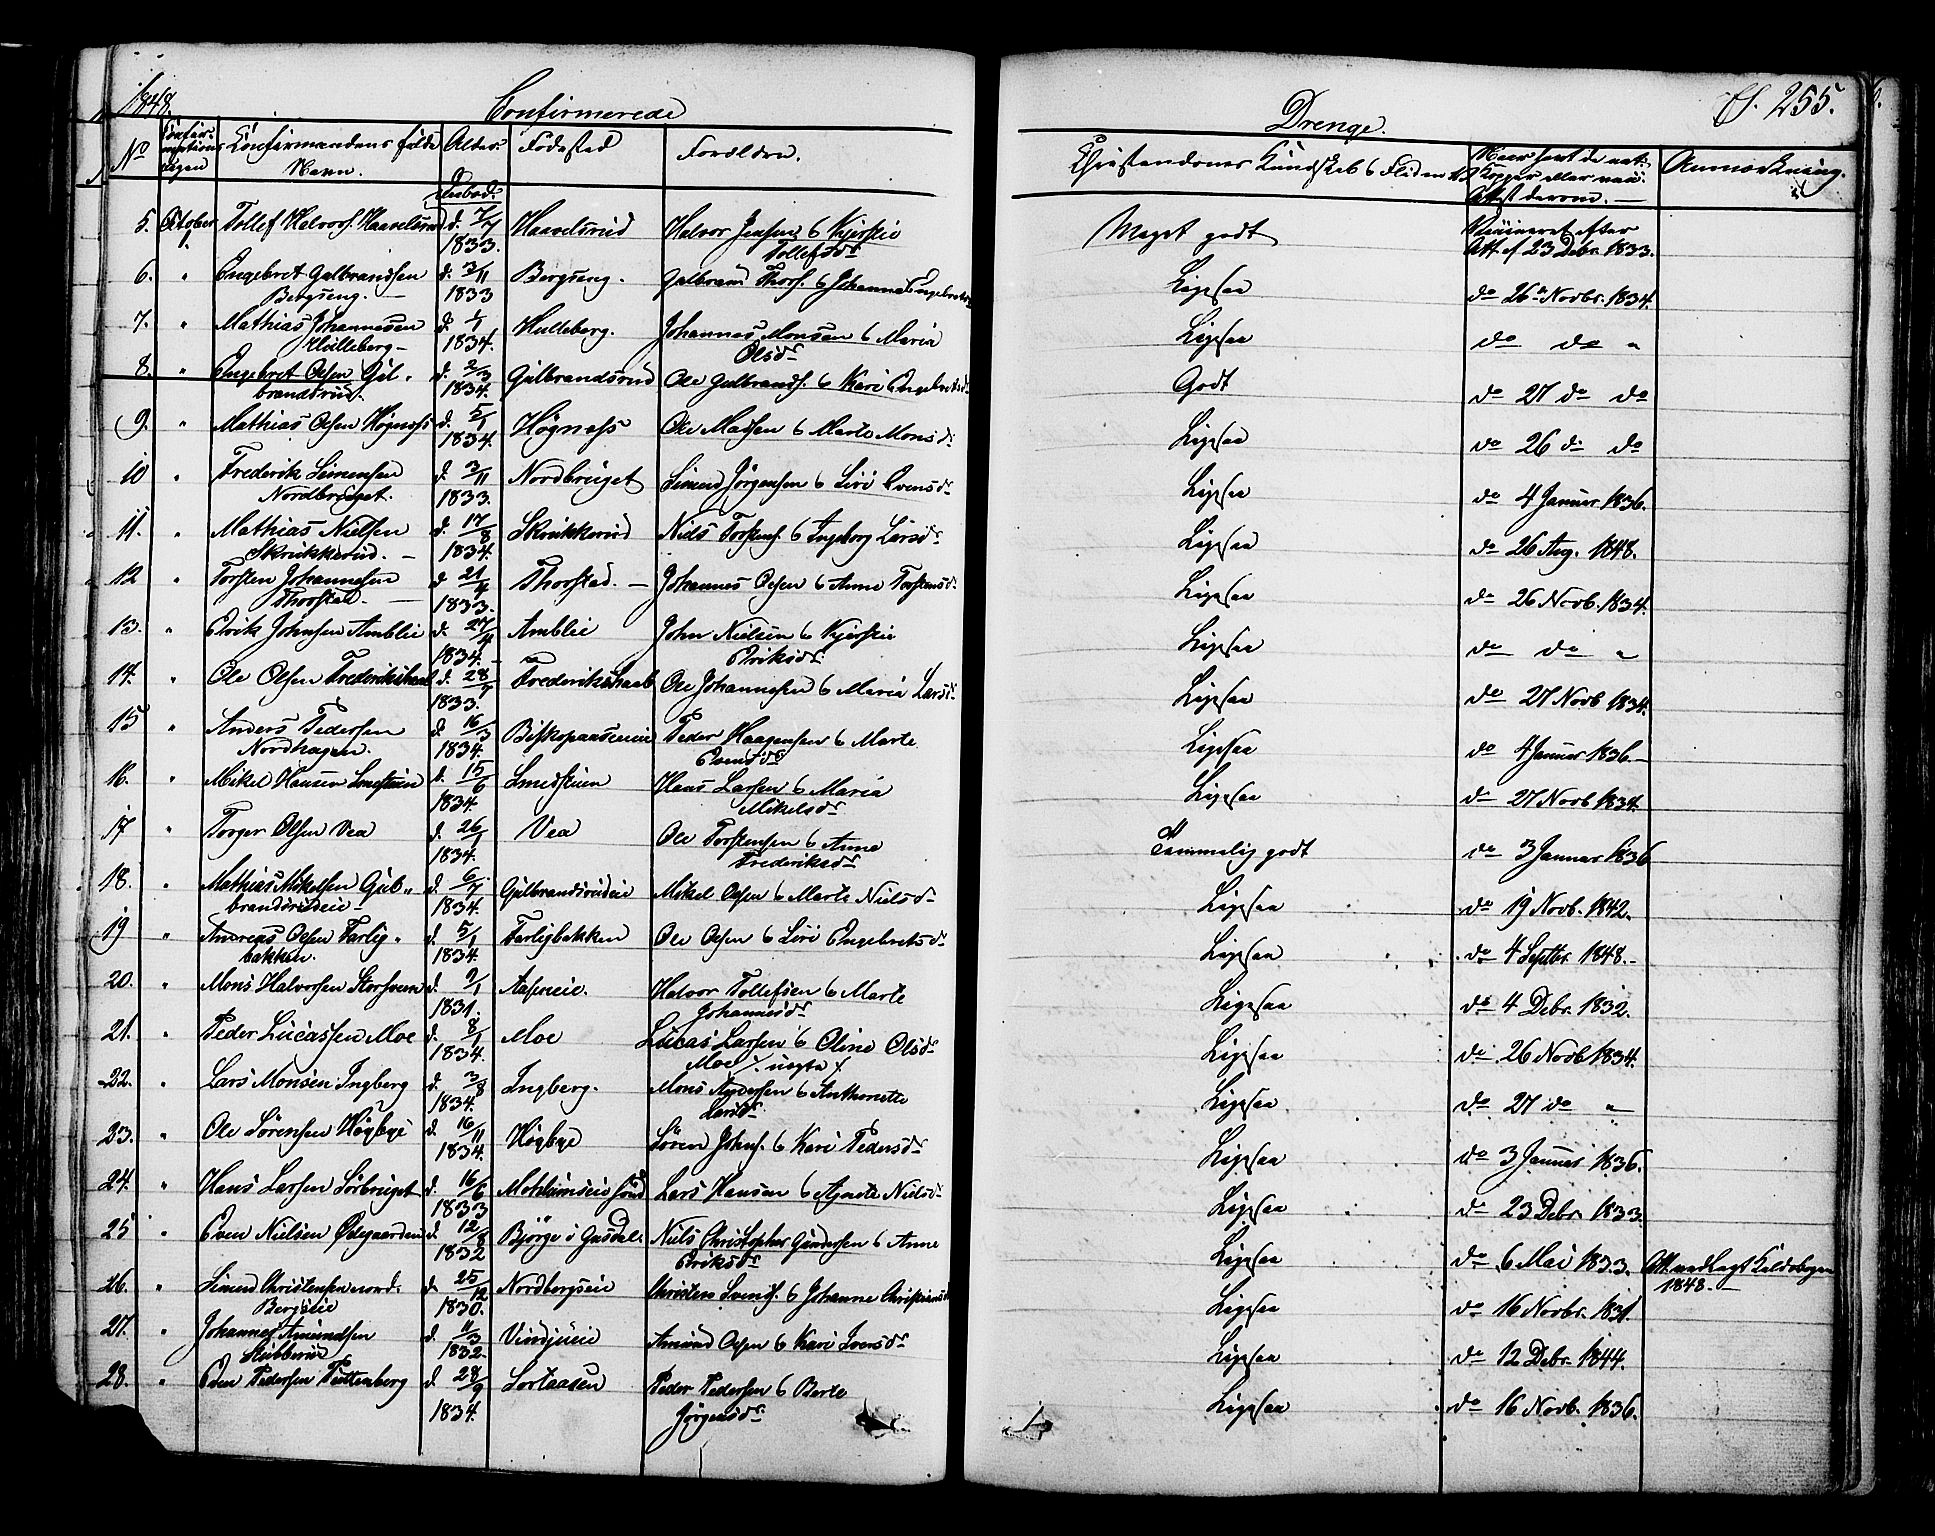 1848. Confirmerede Drenge. S. 255.
No Confirmations Dagen Confirmandens fulde Navn. Alder. Fødested Forældre. Christendoms Kundskab & Fliid Naar havt de nat: Kopper eller vacc: Attest derom. Anmærkning.
5. October 1. Tollef Halvors. Haavelsrud d. 7/7 1833. Haavelsrud Halvor Jensen & Kjerstie Tollefsdr Meget godt Vaccineret efter Att. af 23 Debr. 1833.
6. " Engebret Gulbrandsen Bergseng. d. 3/11 1833 Bergseng. Gulbrand Thors. & Johanne Engebretsdr Ligesaa do 26 Novbr. 1834.
7. " Mathias Johannesen Hulleberg d. 1/1 1834. Hulleberg. Johannes Monsen & Maria Olsdr Ligesaa do do "
8. " Engebret Olsen Gulbrandsrud. d. 2/3 1834. Gulbrandsrud Ole Gulbrands. & Kari Engebretsdr Godt do 27 do do
9. " Mathias Olsen Høgnæss d. 5/1 1834. Høgnæss Ole Madsen & Marte Monsdr Ligesaa do 26 do do
10 " Frederik Simensen Nordbruget. d. 3/11 1833. Nordbruget Simen Jörgensen & Siri Evensdr Ligesaa do 4 Januar 1836.
11. " Mathias Nielsen Skrukkerud. d. 17/8 1834. Skrukkerud Niels Torstens. & Ingeborg Larsdr Ligesaa do 26 Aug. 1848.
12 " Torsten Johannesen Thorstad. d. 21/4 1833. Thorstad. Johannes Olsen & Anne Torstensdr Ligesaa do 26 Novb. 1834.
13. " Erik Johnsen Amblie d. 27/4 1834. Amblie John Nielsen & Kjerstie Eriksdr Ligesaa do do "
14. " Ole Olsen Frederikshaab d. 28/7 1833. Frederikshaab Ole Johannesen & Maria Larsdr Ligesaa do 27 Novb 1834.
15 " Anders Pedersen Nordhagen. d. 16/3 1834. Peder Haagensen & Marte Evensdr Ligesaa do 4 Januar 1836.
16. " Mikel Hansen Smestuen d. 15/6 1834. Smedstuen Hans Larsen & Maria Mikelsdr Ligesaa do 27 Novb 1834.
17 " Torger Olsen Vea d. 26/1 1834. Vea Ole Torstensen & Anne Frederiksdr Temmelig godt do 3 Januar 1836
18. " Mathias Mikelsen Gulbrandsrudeie d. 6/7 1834. Gulbrandsrudeie Mikel Olsen & Marte Nielsdr Ligesaa do 19 Novb. 1842.
19 " Andreas Olsen Farligbakken. d. 5/1 1834. Farligbakken Ole Olsen & Siri Engebretsdr Ligesaa do 4 Septbr. 1848.
20. " Mons Halvorsen Storsveen d. 9/1 1831. Halvor Tollefsen & Marte Johannesdr Ligesaa do 4 Debr. 1832.
21. " Peder Lucassen Moe d. 8/1 1834. Moe Lucas Larsen & Oline Olsdr Moe /: uægte :/ Ligesaa do 26 Novb 1834.
22. " Lars Monsen Ingberg d. 3/8 1834. Ingberg. Mons & Anthonette Larsdr Ligesaa do 27 do "
23. " Ole Sørensen Høgbye d. 16/11 1834. Høgbye Søren Johns. & Kari Pedersdr Ligesaa do 3 Januar 1836.
24. " Hans Larsen Sørbruget d. 16/6 1833 Lars Hansen & Agnete Nielsdr Ligesaa do 23 Debr. 1833.
25 " Even Nielsen Ødegaarden d. 12/8 1832 Bjørge i Gusdal. Niels Christopher Gundersen & Anne Eriksdr Ligesaa do 6 Mai 1833. Att. nedlagt Kaldsbogen 1848.
26. " Simen Christensen nord-Bergseie d. 25/12 1830. Nordbergseie Christen Svends. & Johanne Christiansdr Ligesaa do 16 Novbr. 1831.
27. " Johannes Amundsen Stubberud d. 11/3 1832. Vindjueie Amund Olsen & Kari Iversdr Ligesaa do 12 Debr. 1844.
28. " Even Pedersen Tuttenberg d. 28/9 1834. Sortaasen Peder Pedersen & Berte Jørgensdr. Ligesaa do 16 Novb. 1836.